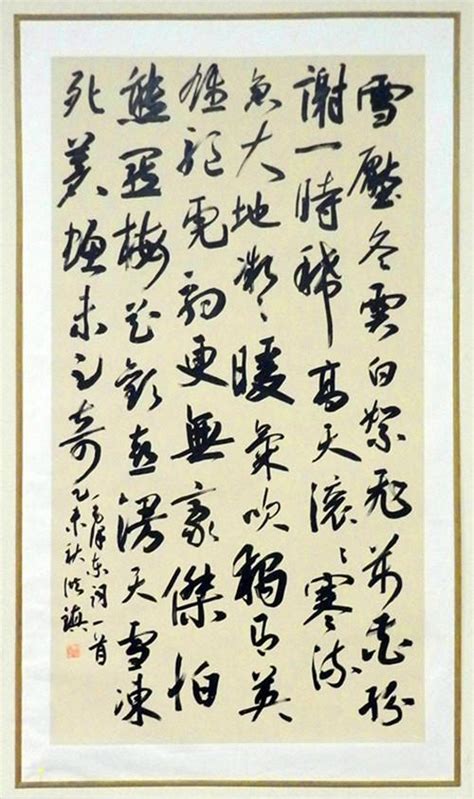 雪壓冬雲白絮飛万花紛
謝一時稀高天滚〻寒流
急大地微〻暖氣吹獨有英
雄驅虎豹更無豪傑怕
熊羆梅花歡喜漫天雪凍
死蒼蠅未足奇
毛泽东詞一首
乙未秋